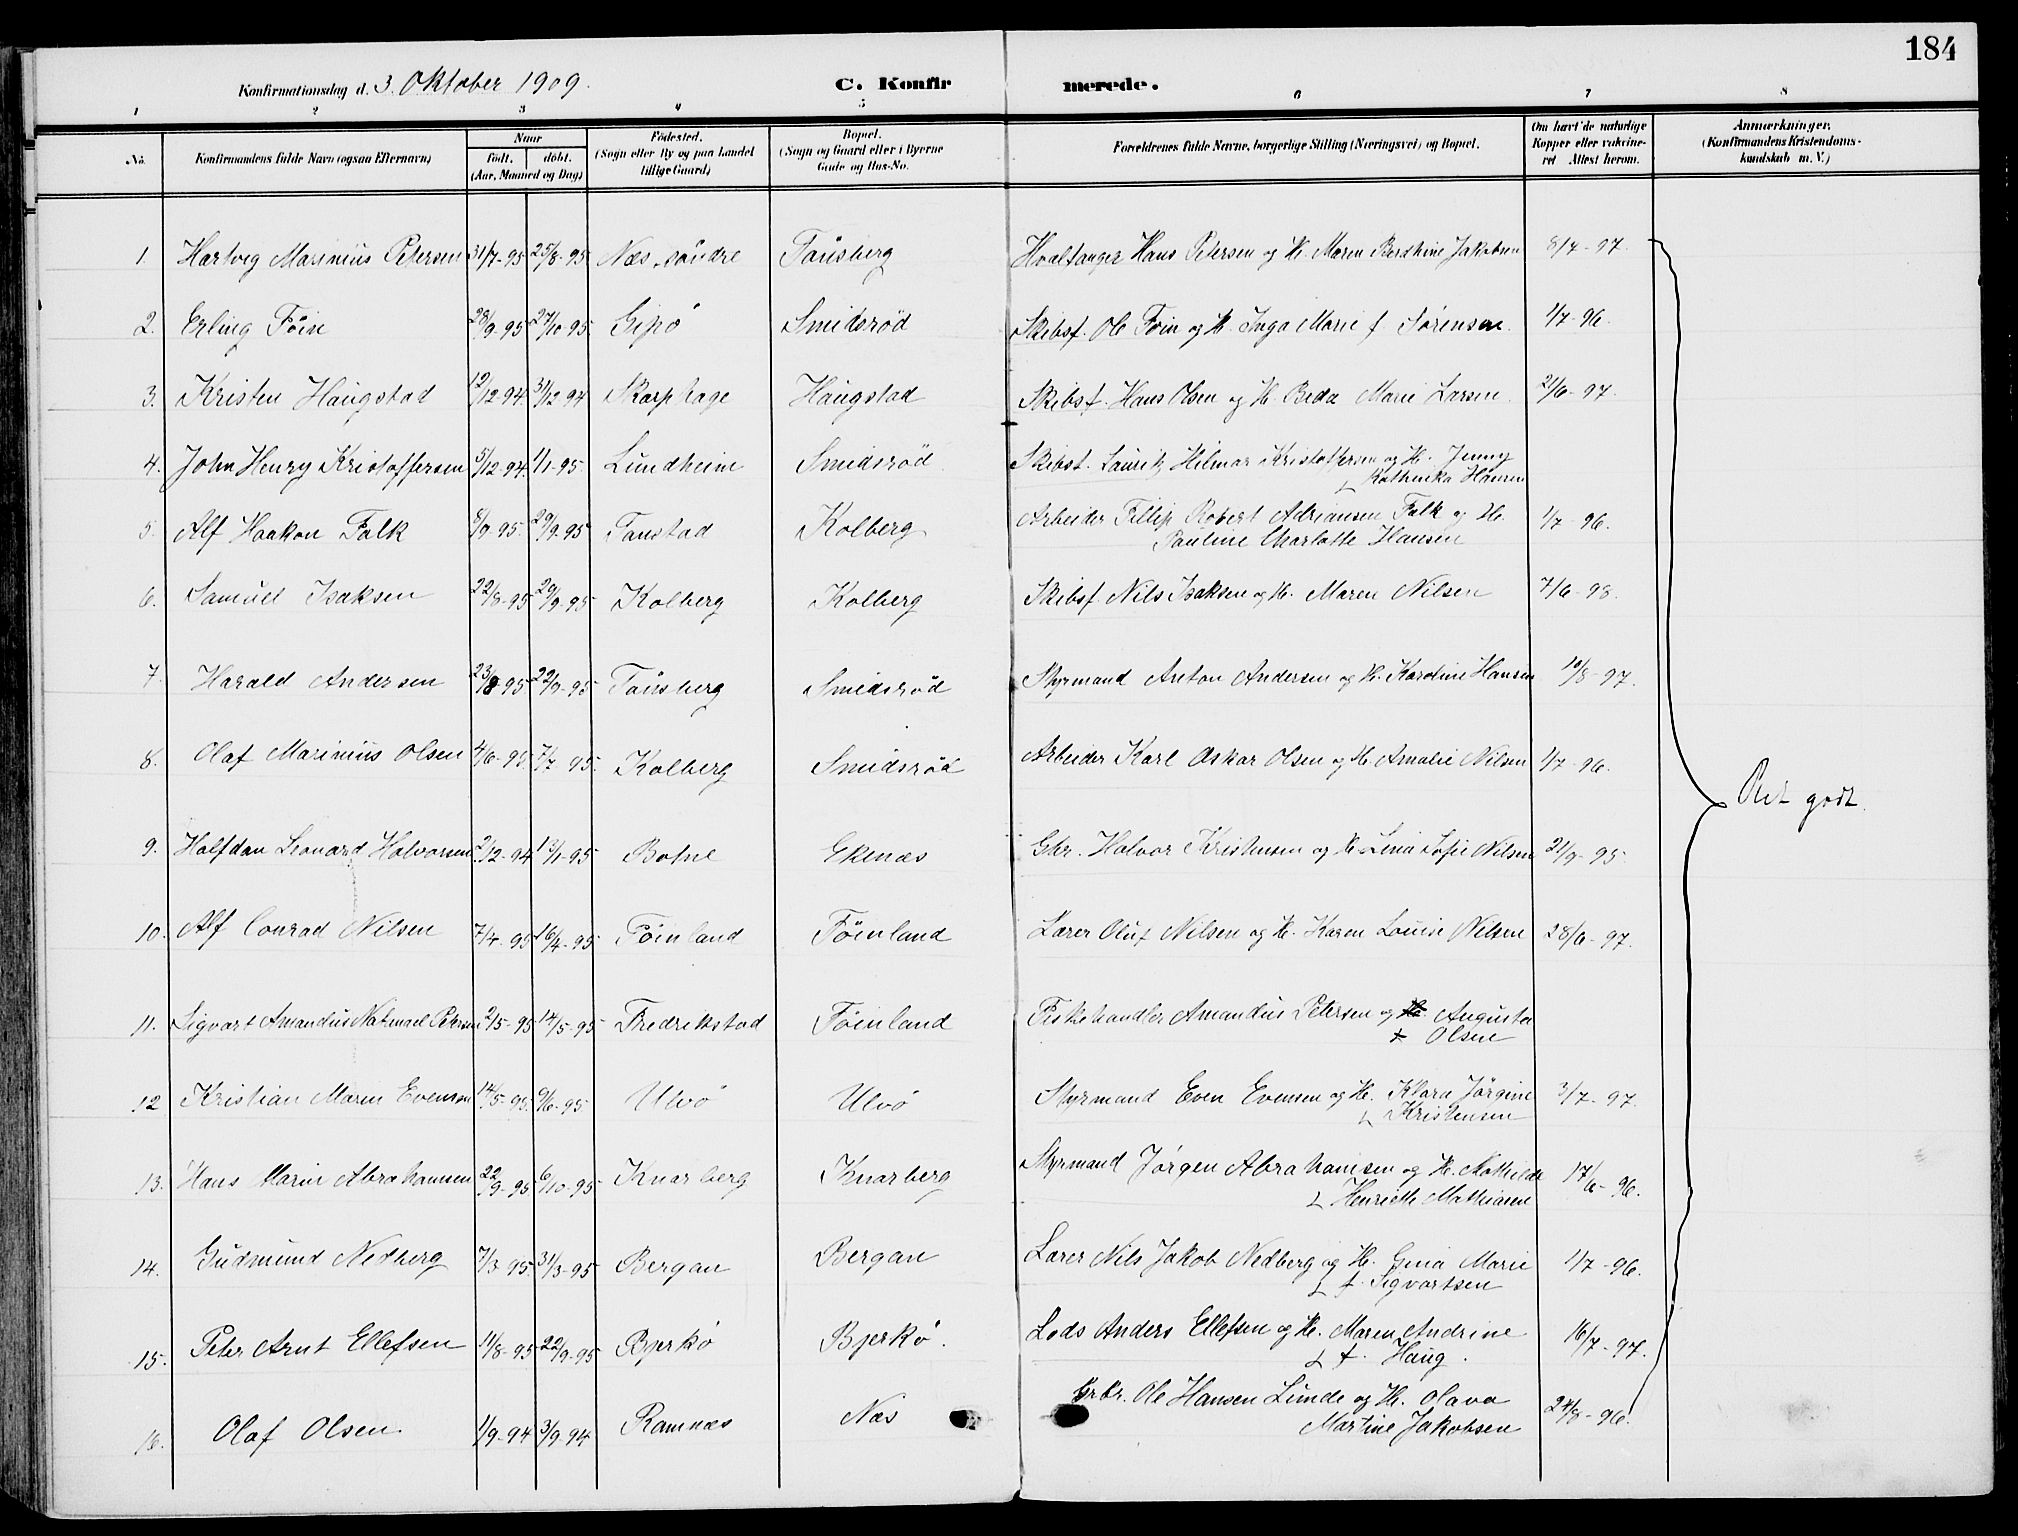 184
Konfirmationsdag d. 3. Oktober 1909.
C. Konfirmerede.
1 2 3 4 5 6 7 8
No.
Konfirmandens fulde Navn (ogsaa Efternavn)
Naar
født. døbt.
(Aar, Maaned og Dag)
Fødested.
(Sogn eller By og paa Landet
tillige Gaard)
Bopæl.
(Sogn og Gaard eller i Byerne
Gade og Hus-No.
Forældrenes fulde Navne, borgerlige Stilling (Næringsvei) og Bopæl.
Om havt de naturlige
Kopper eller vakcine-
ret Attest herom.
Anmærkninger.
(Konfirmandens Kristendoms-
kundskab m. V.)
1. Hartvig Marinius Petersen 31/7-95 25/8-95 Næs, søndre Tønsberg Hvalfanger Hans Petersen og H. Maren Berthine Jakobsen 8/4-97.
2. Erling Föin 28/9-95 27/10-95 Gipö Smidsröd Skibsf. Ole Foin og H. Inga Marie f Sörensen. 1/7-96.
3. Kristen Haugstad 12/12-94 31/12 94 Skarphage Haugstad Skibsf. Hans Olsen og H. Beda Marie Larsen 21/6-97.
4. John Henry Kristoffersen 5/12-94. 1/1-95. Lundheim Smidsröd Skibsf. Lauritz Hilmar Kristoffersen og H. Jenny
Kathinka Hansen
5. Alf Haakon Falk 8/9-95. 29/9-95 Tanstad Kolberg Arbeider Fillip Robert Adriansen Falk og H. 1/7-96.
Pauline Charlotte Hansen
6. Samuel Isaksen 22/8-95 29/9-95 Kolberg Kolberg Skibsf. Nils Isaksen og H. Maren Nilsen 7/6-98.
7. Harald Andersen 23/8-95 22/9-95 Tönsberg Smidsröd Styrmand Anton Andersen og H. Karoline Hansen 10/8-97.
8. Olaf Marinius Olsen 4/6-95. 7/7 95. Kolberg Smidsröd Arbeider Karl Oskar Olsen og H. Amalie Nilsen 1/7-96.
Ret godt.
9. Halfdan Leonard Halvorsen 2/12-94 13/1-95 Botne Ekenæs Gbr. Halvor Kristensen og H. Lina Sofie Nilsen 21/9-95.
10. Alf Conrad Nilsen 7/4-95 16/4-95 Föinland Föinland Lærer Oluf Nilsen og H. Karen Louise Nilsen 28/6-97.
11. Sigvart Amandus Natanael Petersen 2/5-95 14/5-95 Fredrikstad Föinland Fiskehandler Amandus Petersen og H. Augusta
Olsen
12 Kristian Marin Evensen 14/5-95. 9/6-95 Ulvö Ulvö Styrmand Even Evensen og H. Klara Jörgine 3/7-97.
Kristensen
13. Hans Marin Abrahamsen 22/9-95 6/10-95 Knarberg Knarberg Styrmand Jörgen Abrahamsen og H. Mathilde 17/6-96.
Henriette Mathiasen
14. Gudmund Nedberg 7/3-95. 31/3-95 Bergan Bergan Lærer Nils Jakob Nedberg og H. Gina Marie 1/7-96.
f. Sigvartsen
15. Peter Arnt Ellefsen 11/8-95 22/9-95 Bjerkö Bjerkö. Lods Anders Ellefsen og H. Maren Andrine 16/7-97.
f. Haug.
16. Olaf Olsen. 1/9-94 3/9-94 Ramnæs Næs Grbr. Ole Hansen Lunde og H. Olava 24/8-96.
Martine Jakobsen